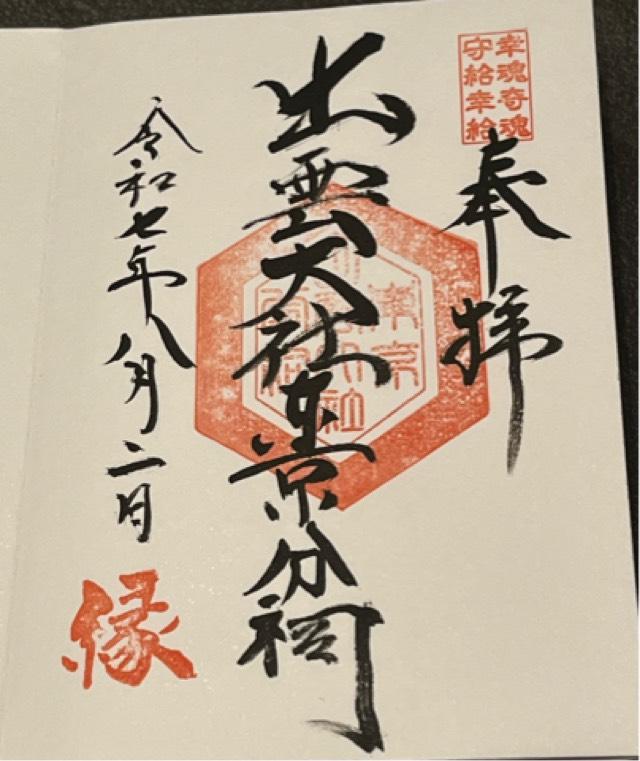 幸魂奇魂
守給幸給
奉拝
出雲大社東京分祠
令和七年八月二日
縁